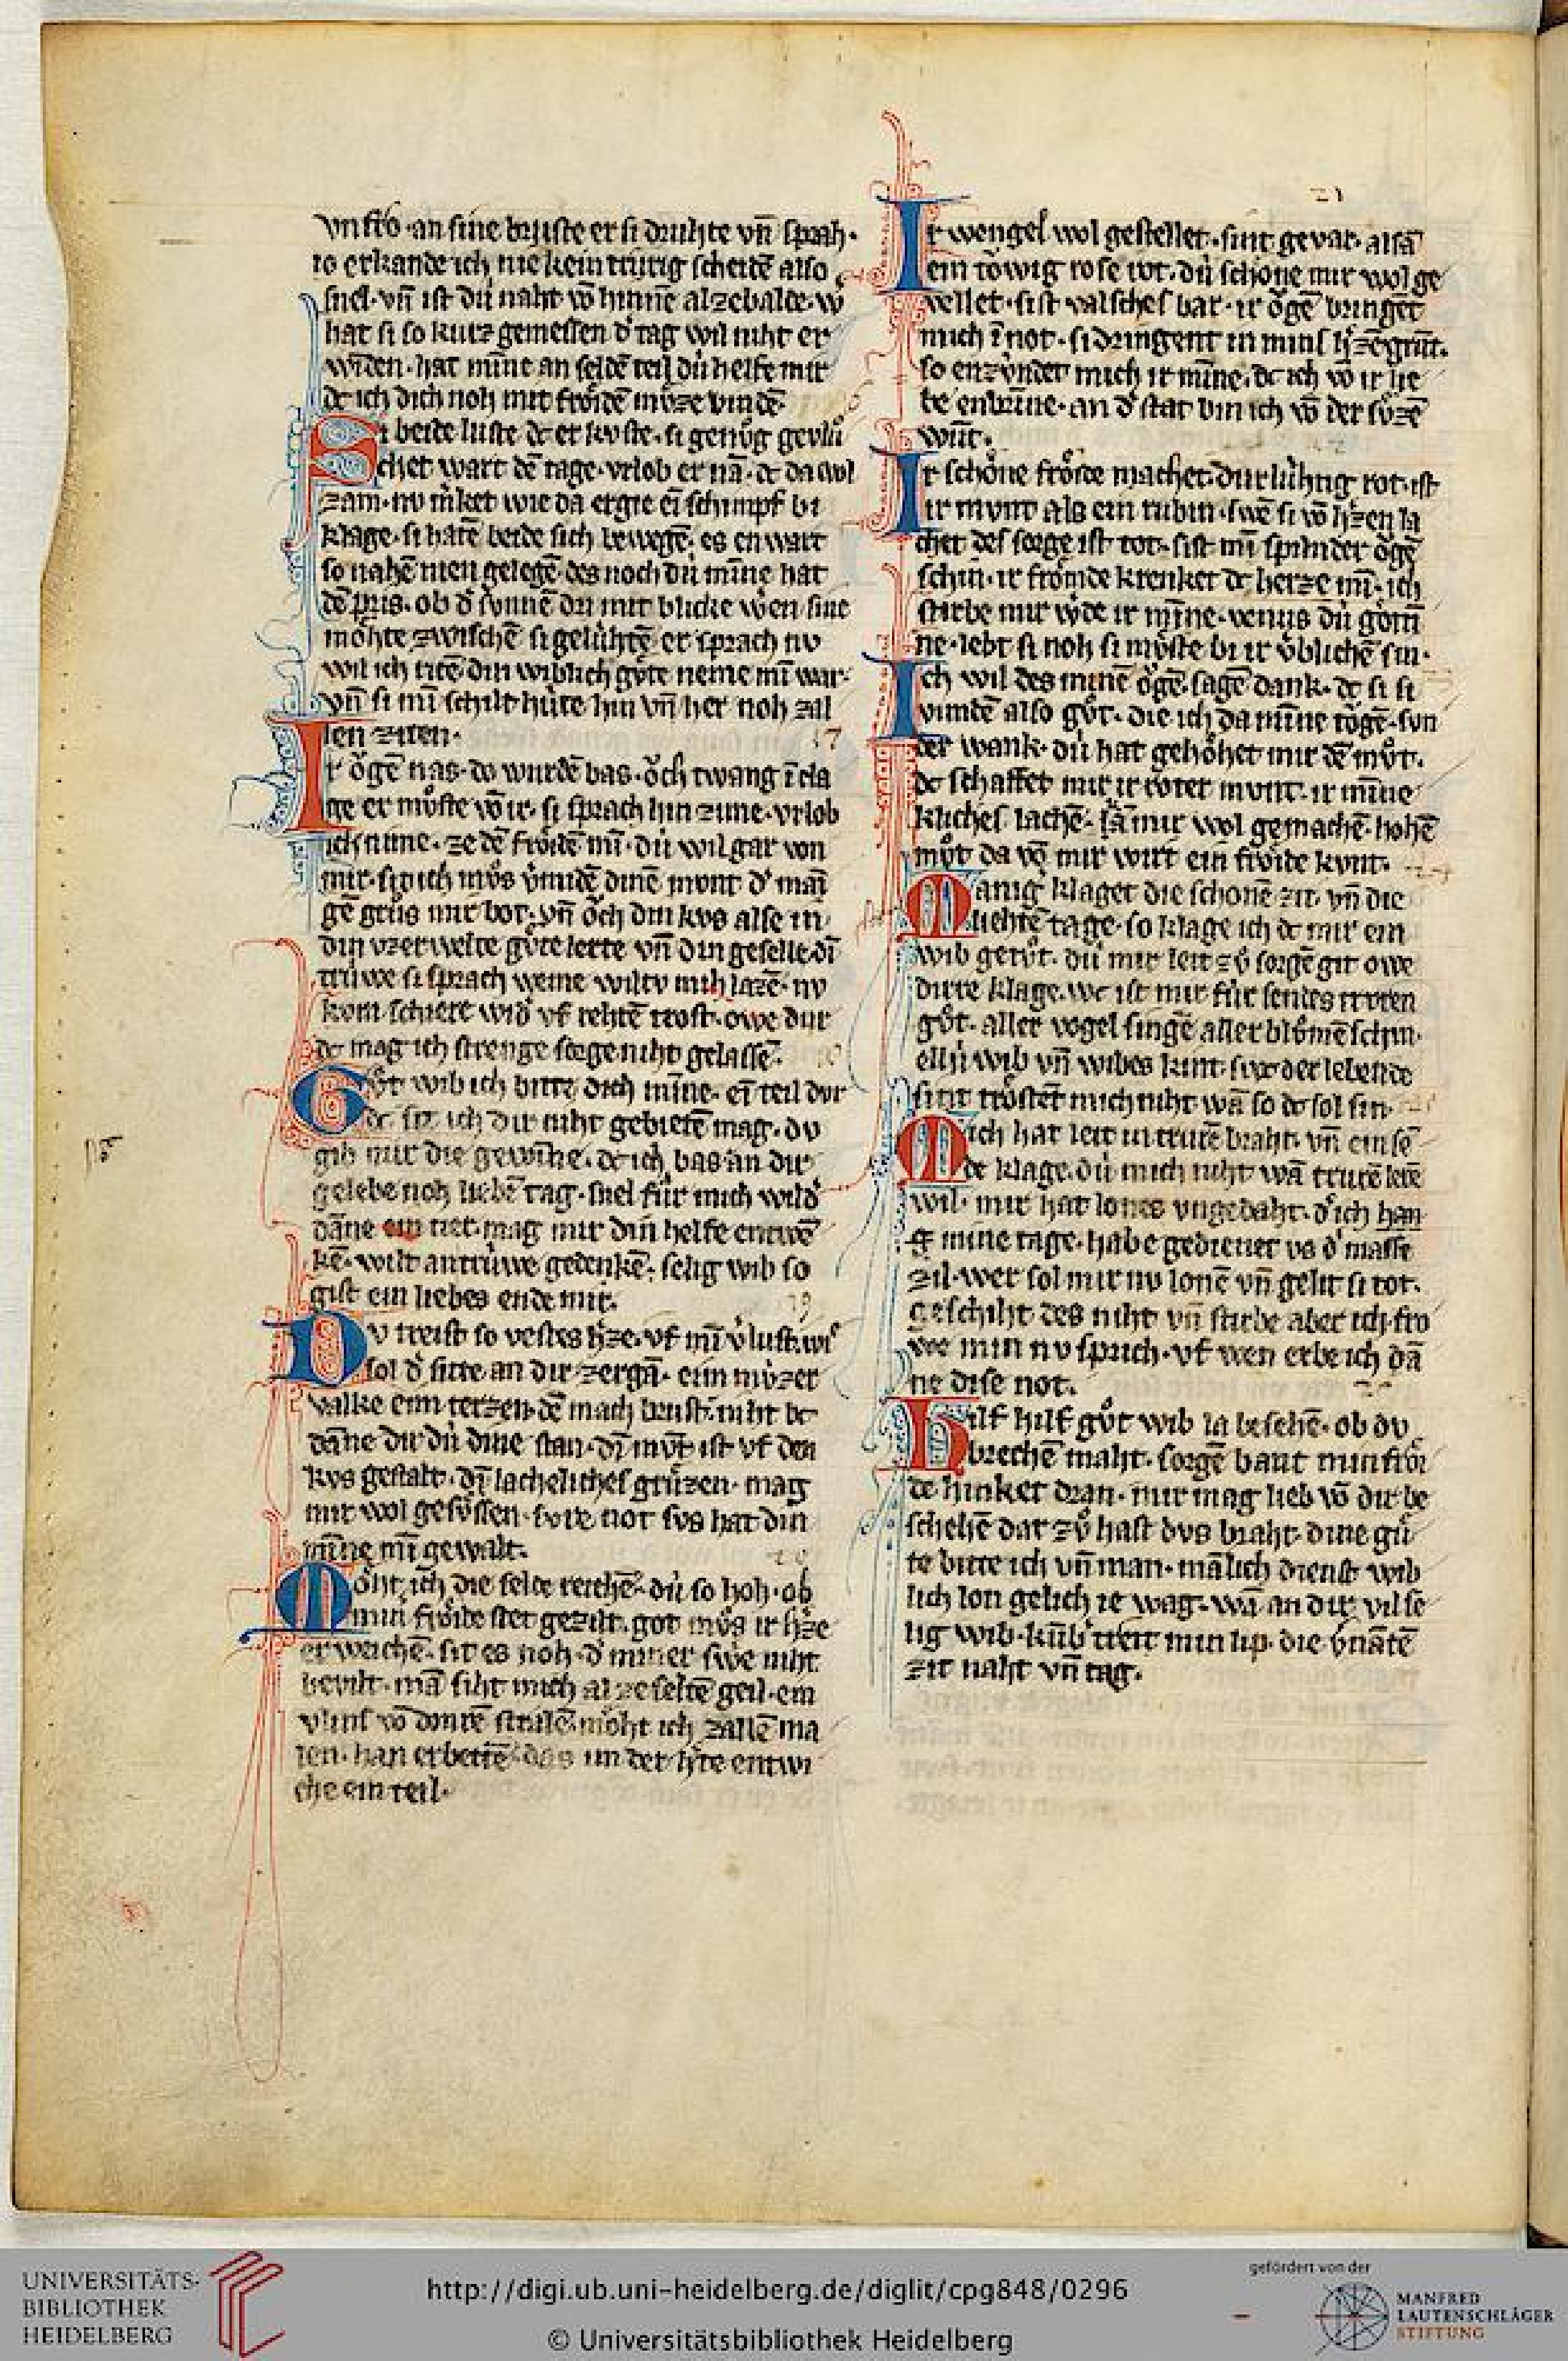 vnſtv̾ · an ſine bruſte er ſi druhte vn̄ ſprah ·
io erkande ich nie kein trurig ſcheidē alſo
ſnel · vn̄ iſt dü naht vō hinnē alzebalde · w̾
hat ſi ſo kurz gemeſſen d̾ tag wil niht er
wīdē · hat mīne an ſeldē teil dü helfe mir
dc ich dich noh mit froͤidē muͤze vindē
Si beide luſte dc er kvſte · ſi genuͦg gevlu
chet wart dē tage · vrlob er nā · dc da wol
zam · nv m̾ket wie da ergie eī ſchimpf bi
klage · ſi hatē beide ſich bewegē · es en wart
ſo nahē nien gelegē des noch dü mīne hat
dē pris · ob d̾ ſvnnē dri mit blicke w̾en ſine
moͤhte zwiſchē ſi gelühtē er ſprach nv
wil ich ritē · din wiblich guͤte neme mī war ·
vn̄ ſi mī ſchilt hüte hin vn̄ her noh zal
len ziten ·
17
Ir oͮgē nas · do wurdē bas · oͮch twang ī cla
ge er muͦſte vō ir · ſi ſprach hin zime · vrlob
ich nime · ze dē froͤidē mī · dü wil gar von
mir · ſit ich muͦs v̾midē dinē mont d̾ mani
gē gruͦs mir bot · vn̄ oͮch din kvs alſe in
din vzerwelte guͤte lerte vn̄ din geſelle · dī
trüwe ſi ſprach weme wiltv mih lazē · nv
kom ſchiere wid̾ vf rehtē troſt · owe dur
dc mag ich ſtrenge ſorge niht gelaſſē ·
Guͦt wib ich bitte dich mīne · eī teil dvr
dc ſit ich dir niht gebietē mag · dv
gib mir die gewīne · dc ich bas an dir
gelebe noh liebē tag · ſnel für mich wild̾
dāne ein tiet · mag mir din helfe entwē
kē · wilt an trüwe gedenkē · ſelig wib ſo
giſt ein liebes ende mir ·
19
Dv treiſt ſo veſtes h̾ze · vf mī v̾luſt · wi
ſol d̾ ſitte an dir zergā · eim muͦzer
valke eim terzen · dē mach bruſt · niht bc
dāne dir dü dine ſtan · dī mvt iſt vf den
kvs geſtalt · dī lachelicheſ gruͤzen · mag
mir wol geſuͦſſen · ſvre not ſvs hat din
mīne mī gewalt ·
20
Moͤht ich die ſelde reichē · dü ſo hoh · ob
min froͤide ſtet gezilt · got muͦs ir h̾ze
er weichē · ſit es noh · d̾ miner ſw̾e niht
bevilt · mā ſiht mich alzeſeltē geil · em
vlinſ vō donrē ſtralē · moͤht ich zallē ma
len · han erbettē · das im der h̾te entwi
che ein teil ·
21
Ir wengel wol geſtellet · ſint gevar · alſā
ein toͮwig roſe rot · dü ſchone mir wol ge
vellet · ſiſt valſcheſ bar · ir oͮgē bringet
mich ī not · ſi dringent in minſ h̾zē grūt ·
ſo enzündet mich ir mīne · dc ich vō ir lie
be enbrīne · an d̾ ſtat bin ich vō der ſuͤzē
wūt ·
Ir ſchoͤne froͤide machet · durlühtig rot · iſt
ir mvnt als ein rubin · ſwē ſi vō h̾zen la
chet deſ ſorge iſt tot · ſiſt mī ſpilnder oͮgē
ſchin · ir froͤmde krenket dc herze mī · ich
ſtirbe mir w̾de ir mīne · venus dü goͤttī
ne · lebt ſi noh ſi muͤſte bi ir v̾blichē ſin ·
Ich wil des minē oͮgē · ſagē dank · dc ſi ſi
vundē alſo guͦt · die ich da mīne toͮgē · ſvn
der wank · dü hat gehoͤhet mir dē muͦt ·
dc ſchaffet mir ir roter munt · ir mīne
klicheſ lachē · kā mir wol gemachē · hohē
muͦt da vō mir wirt ein froͤide kvnt ·
24
Manig klaget die ſchonē zit · vn̄ die
liehtē tage · ſo klage ich dc mir ein
wib getuͦt · dü mir leit zuͦ ſorgē git owe
dirre klage · wc iſt mir für ſendes trvren
guͦt · aller vogel ſingē aller bluͦmē ſchin ·
ellü wib vn̄ wibes kint · ſwc der lebende
ſint troͤſtēt mich niht wā ſo dc ſol ſin ·
Mich hat leit in trurē braht · vn̄ ein ſē
de klage · dü mich niht wā trurē lerē
wil · mir hat lones vngedaht · d̾ ich han
ꝯ mine tage · habe gedienet vs d̾ maſſe
zil · wer ſol mir nv lonē vn̄ gelit ſi tot ·
geſchiht des niht vn̄ ſtirbe aber ich · fro
we min nv ſprich · vf wen erbe ich dā
ne diſe not ·
26
Hilf hilf guͦt wib la beſehē · ob dv
brechē maht · ſorgē bant min froͤi
de hinket dran · mir mag lieb vō dir be
ſchehē dar zuͦ haſt dvs braht · dine guͤ
te bitte ich vn̄ man · mālich dienſt wib
lich lon gelich ie wag · wā an dir vil ſe
lig wib · kūb̾ treit min lip · die v̾nātē
zit naht vn̄ tag ·
UNIVERSITÄTS-
BIBLIOTHEK
HEIDELBERG
http://digi.ub.uni-heidelberg.de/diglit/cpg848/0296
© Universitätsbibliothek Heidelberg
gefördert von der
MANFRED
LAUTENSCHLÄGER
STIFTUNG